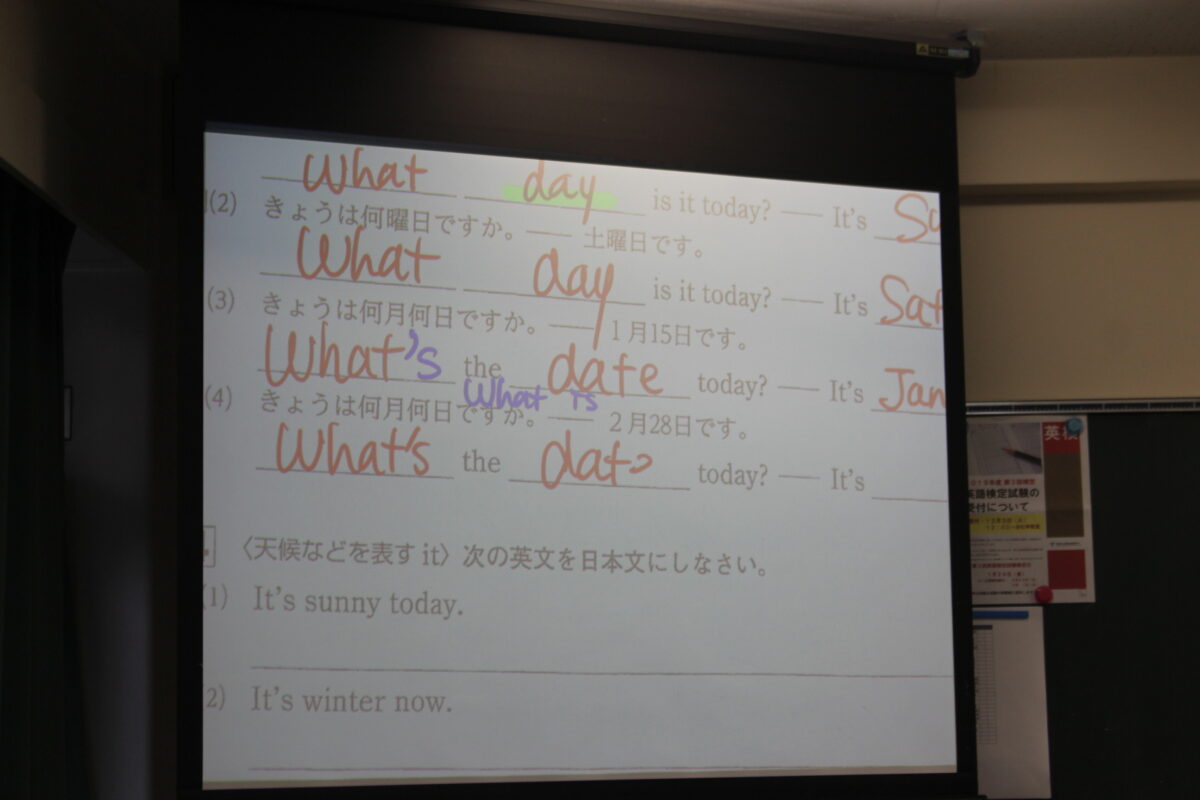 What day is it today? —— It's Su
(2) きょうは何曜日ですか。—— 土曜日です。
What day is it today? —— It's Sat
(3) きょうは何月何日ですか。—— 1月15日です。
What's the date today? —— It's Jan
What is
(4) きょうは何月何日ですか。—— 2月28日です。
What's the date today? —— It's
〈天候などを表す it〉 次の英文を日本文にしなさい。
(1) It's sunny today.
(2) It's winter now.
英検
英語検定試験の
受付について